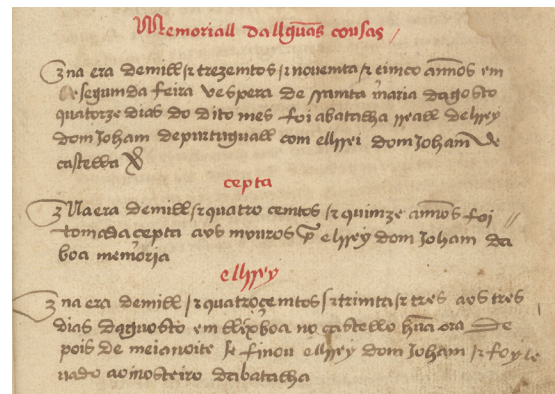 Memoriall dallguãs cousas
na era de mill & trezemtos & novemta & cimco annos em
segumda feira vespera de samta maria dagosto
quatorze dias do dito mes foi abatalha rreall delrrey
dom Joham de purtuguall com ellrrei dom Joham de
castella
cepta
Na era de mill & quatro cemtos & quimze annos foi
tomada cepta aos mouros p ellrrey dom Joham da
boa memoria
ellrrey
na era de mill & quatroçemtos & trimta & tres aos tres
dias dagosto em lixboa no castello hũa ora de
pois de meia noite se finou ellrrey dom Joham & foy le
vado ao mosteiro dabatalha